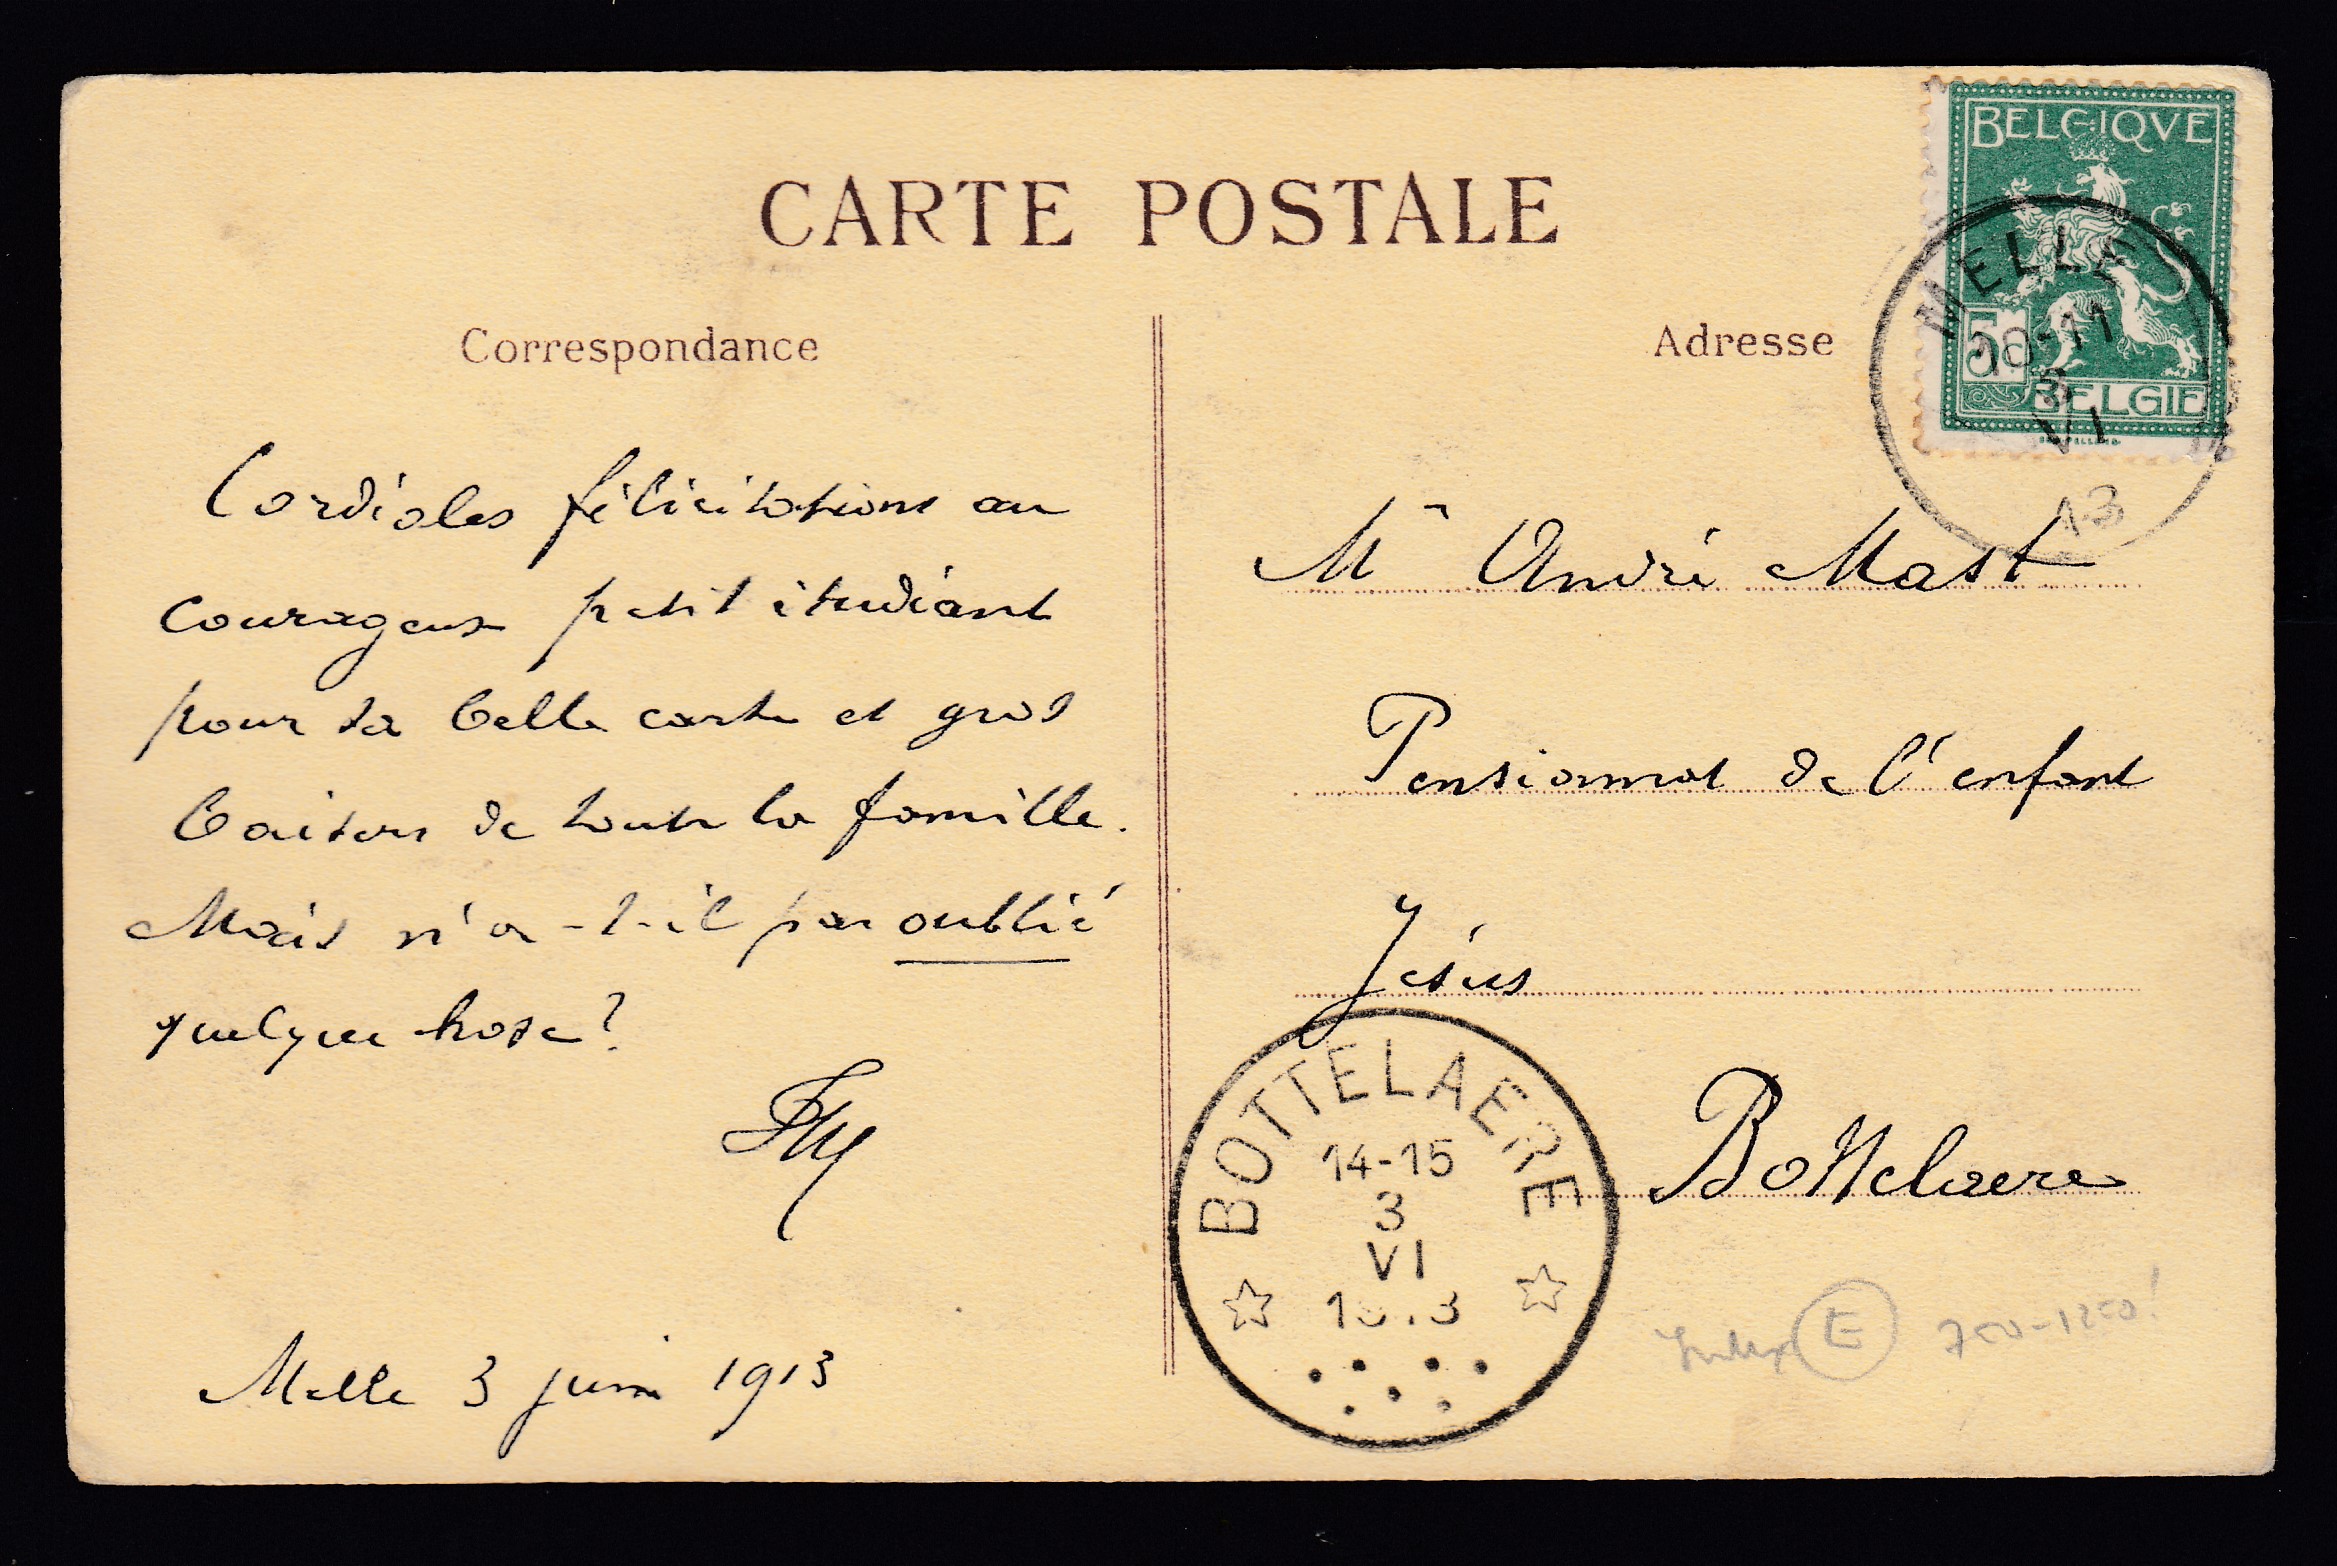 CARTE POSTALE
Correspondance
Cordiales félicitations au
courageux petit étudiant
pour sa belle carte et gros
baisers de toute la famille.
Mais n'a-t-il pas oublié
quelque chose?
Melle 3 juin 1913
Adresse
Mr André Mast
Pensionnat de l'enfant
Jésus
Bottelaere
BELGIQVE
5
BELGIE
MELLE
10-11
3
VI
13
BOTTELAERE
14-15
3
VI
1913
E 700-1250!